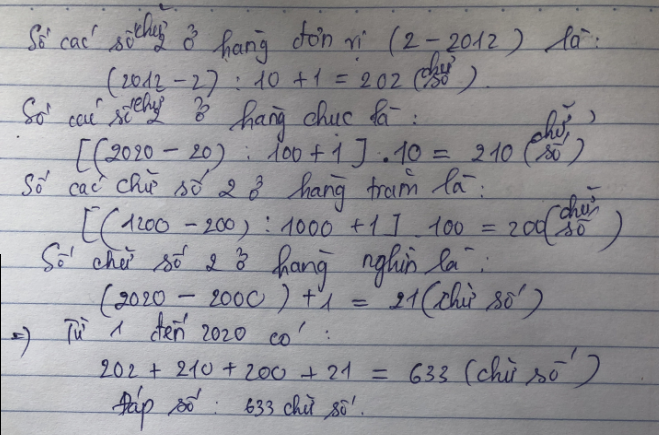 Số các số chữ 2 ở hàng đơn vị (2 - 2012) là:
(2012 - 2) : 10 + 1 = 202 (chữ số).
Số các số chữ 2 ở hàng chục là:
[(2020 - 20) : 100 + 1] . 10 = 210 (chữ số)
Số các chữ số 2 ở hàng trăm là:
[(1200 - 200) : 1000 + 1] . 100 = 200 (chữ số)
Số chữ số 2 ở hàng nghìn là:
(2020 - 2000) + 1 = 21 (chữ số)
=) Từ 1 đến 2020 có:
202 + 210 + 200 + 21 = 633 (chữ số)
Đáp số: 633 chữ số.